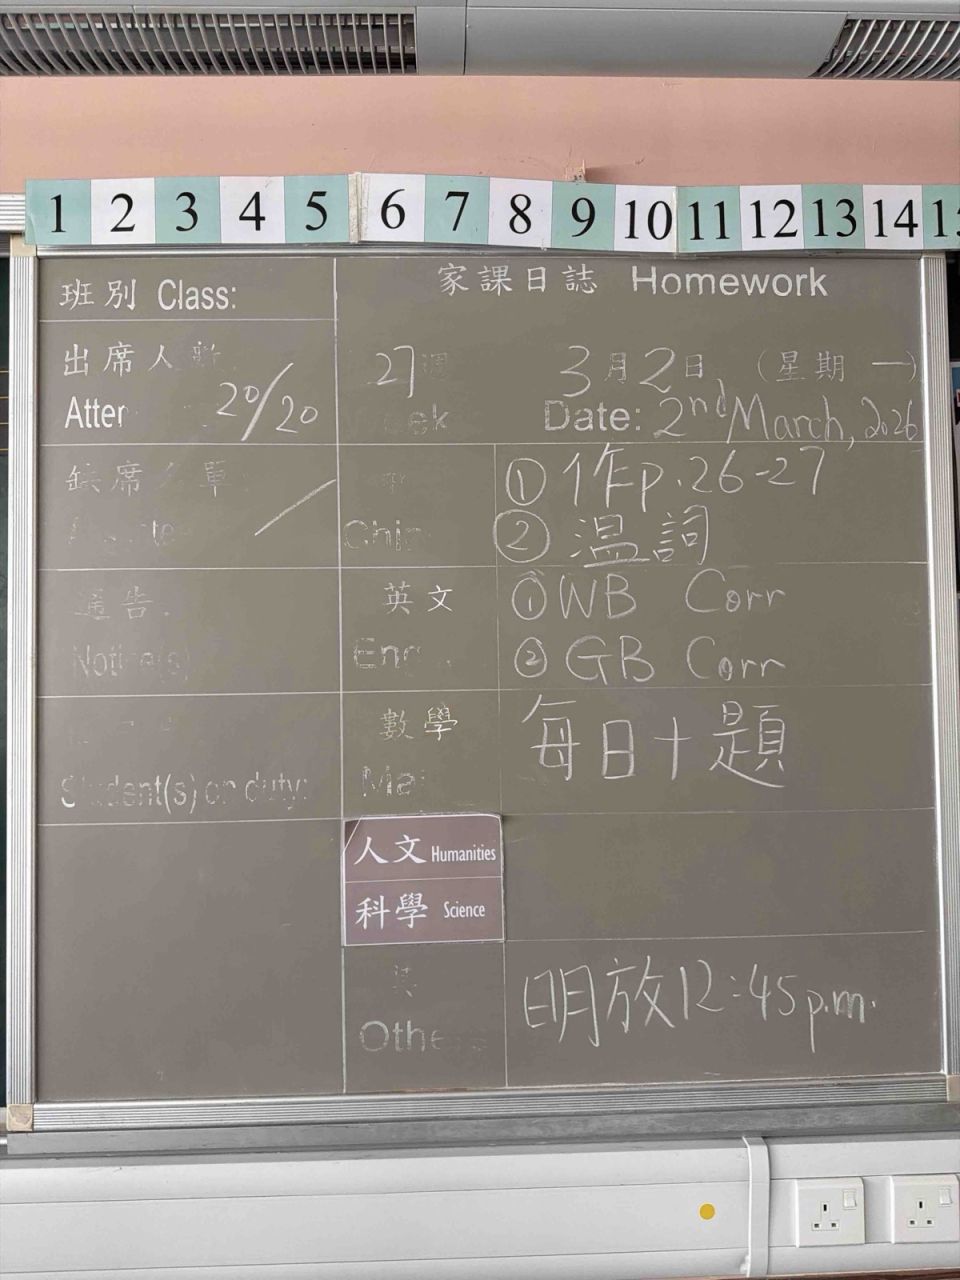 1 2 3 4 5 6 7 8 9 10 11 12 13 14 15
班別 Class:
家課日誌 Homework
出席人數
Atter
20/20
27週
eek
3月2日 (星期一)
Date: 2nd March, 2026
缺席人單
Chin
① 作p.26-27
② 温詞
通告
Notice(s)
英文
Eng
① WB Corr
② GB Corr
Student(s) on duty:
數學
Ma
每日十題
人文 Humanities
科學 Science
其
Others
明放12:45p.m.